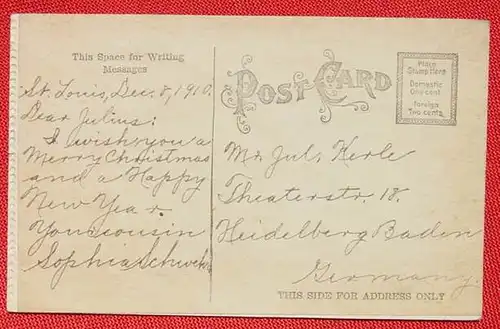 This Space for Writing
Messages
St. Louis, Dec. 8, 1910.
Dear Julius:
I wish you a
Merry Christmas
and a Happy
New Year.
Your cousin
Sophia
POST CARD
Place
Stamp Here
Domestic
One cent
foreign
Two cents
Mr. Jul. Kerle
Theaterstr. 18.
Heidelberg Baden
Germany.
THIS SIDE FOR ADDRESS ONLY